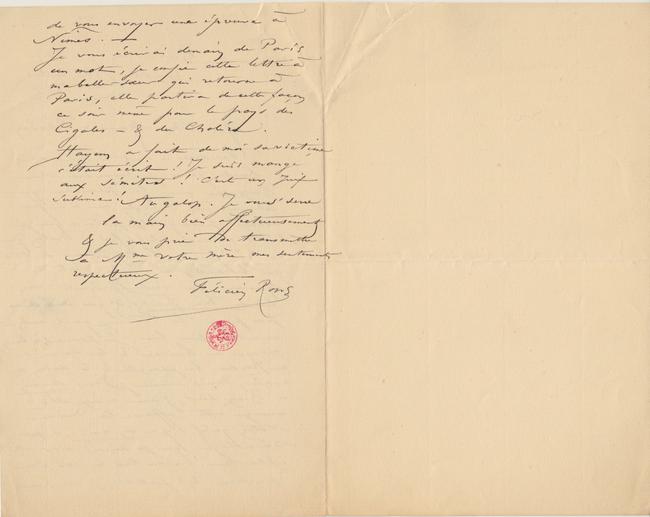 de vous envoyer une épreuve à
Nîmes. —
Je vous écrirai demain de Paris
un mot, je confie cette lettre à
ma belle sœur qui retourne à
Paris, elle partira de cette façon
ce soir même pour le pays des
Cigales – & du Choléra.
Hayem a fait de moi sa victime
c'était écrit ! Je suis mangé
aux sémites ! C'est un Juif
sublime ! Au galop. Je vous serre
la main bien affectueusement
& je vous prie de transmettre
à Mme votre mère mes sentiments
respectueux.
Félicien Rops